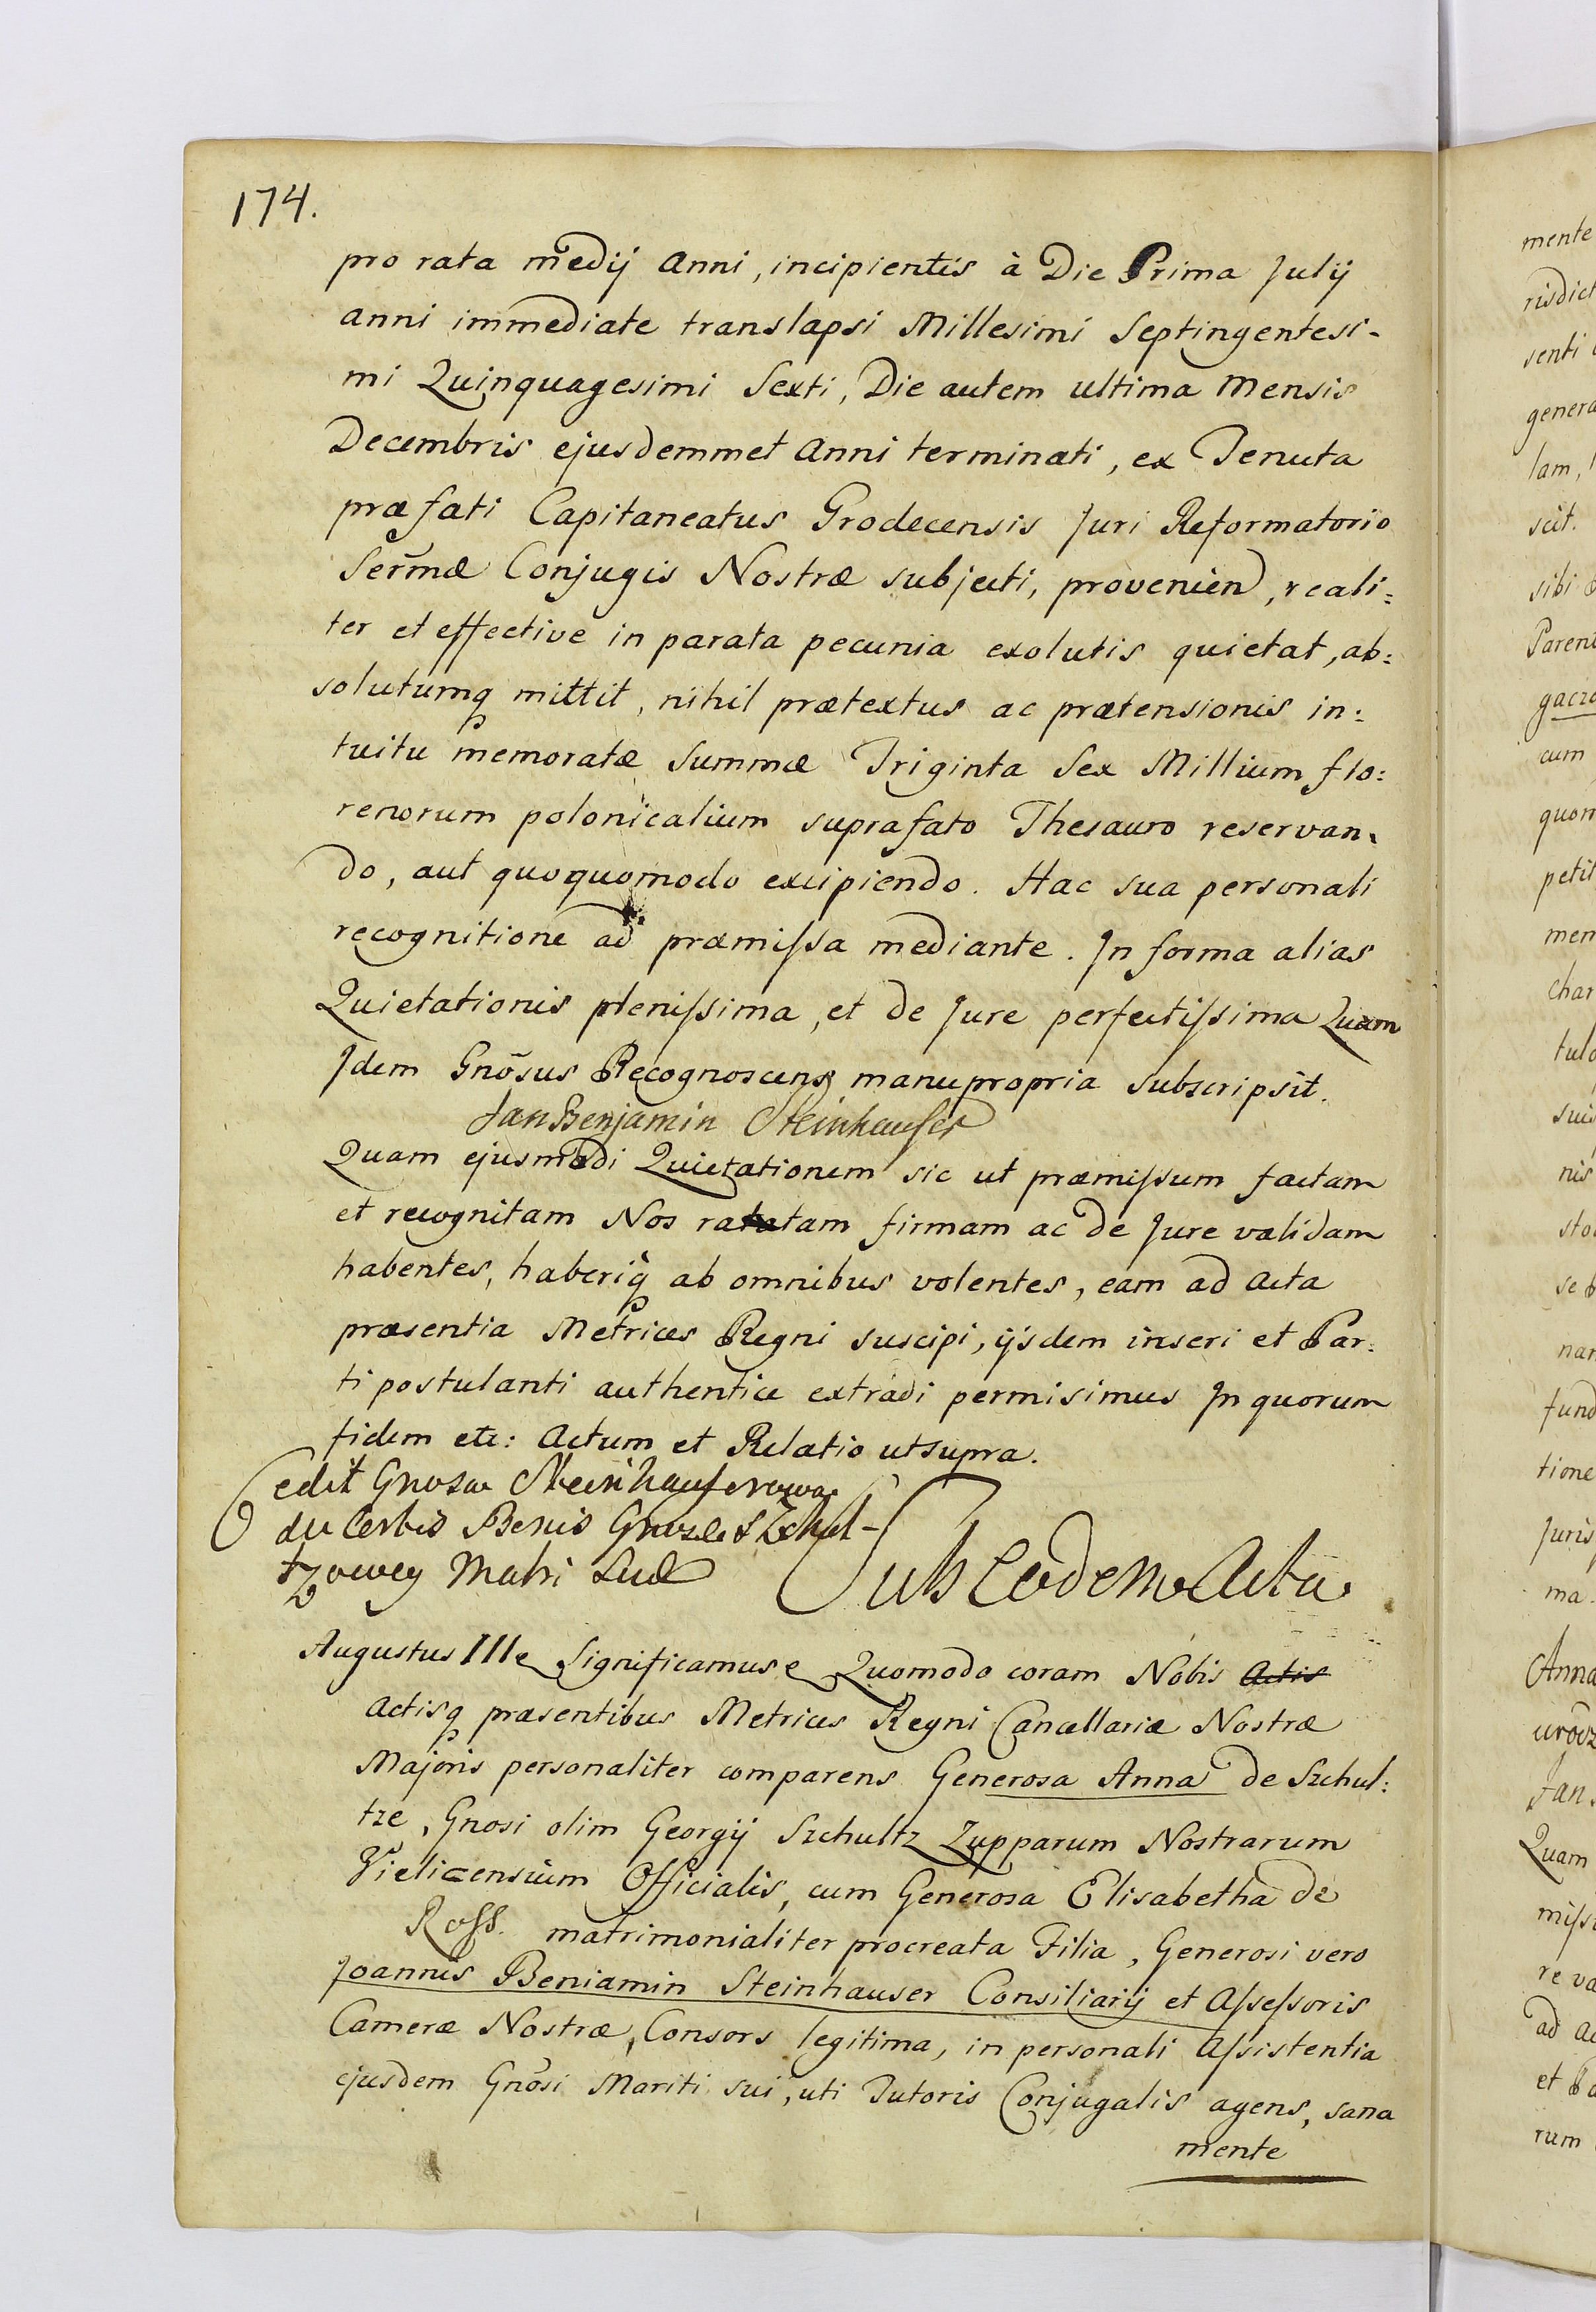 174.
pro rata medij Anni, incipientis à Die Prima Julij
anni immediate translapsi Millesimi Septingentesi-
mi Quinquagesimi Sexti, Die autem ultima Mensis
Decembris ejusdemmet Anni terminati, ex Tenuta
præfati Capitaneatus Grodecensis Juri Reformatorio
Serm̃æ Conjugis Nostræ subjecti, provenien, reali:
ter et effective in parata pecunia exolutis quietat, ab:
solutumq mittit, nihil prætextus ac prætensionis in:
tuitu memoratæ Summæ Triginta Sex Millium flo:
renorum polonicalium suprafato Thesauro reservan-
do, aut quoquomodo excipiendo. Hac sua personali
recognitione ad præmiſsa mediante. In forma alias
Quietationis pleniſsima, et de Jure perfectiſsima Quam
Idem Gnõsus Recognoscens manupropria subscripsit.
Jan Benjamin Steinhauser
Quam ejusmodi Quietationem sic ut præmiſsum factam
et recognitam Nos ratam firmam ac de Jure validam
habentes, haberiq̀ ab omnibus volentes, eam ad Acta
præsentia Metrices Regni suscipi, ijsdem inseri et Par:
ti postulanti authentice extradi permisimus In quorum
fidem etc: Actum et Relatio utsupra.
Cedit Gnosa Steinhauserowa
de Certis Bonis Gnosæ Szchul-
tzowey Matri Suæ
Sub Eodem Actu
Augustus III Significamus Quomodo coram Nobis Actis
Actisq præsentibus Metrices Regni Cancellariæ Nostræ
Majoris personaliter comparens Generosa Anna de Szchul:
tze, Gnosi olim Georgij Szchultz Zupparum Nostrarum
Vielicensium Officialis, cum Generosa Elisabetha de
Roſs. matrimonialiter procreata Filia, Generosi vero
Joannis Beniamin Steinhauser Consiliarij et Aſseſsoris
Cameræ Nostræ, Consors legitima, in personali Aſsistentia
ejusdem Gnõsi Mariti sui, uti Tutoris Conjugalis agens, sana
mente